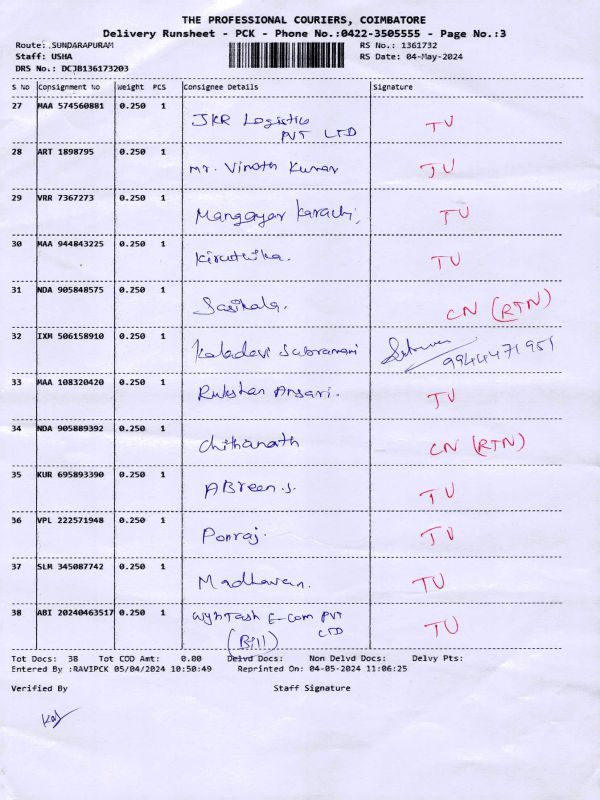 THE PROFESSIONAL COURIERS, COIMBATORE
Delivery Runsheet - PCK - Phone No.:0422-3505555 - Page No.:3
Route: .SUNDARAPURAM RS No.: 1361732
Staff: USHA RS Date: 04-May-2024
DRS No.: DCJB136173203
S No Consignment No Weight PCS Consignee Details Signature
27 MAA 574560881 0.250 1 JKR Logistics TU
PVT LTD
28 ART 1898795 0.250 1 Mr. Vinoth Kumar TU
29 VRR 7367273 0.250 1 Mangayar Karachi, TU
30 MAA 944843225 0.250 1 Kiruthika. TU
31 NDA 905848575 0.250 1 Sasikala. CN (RTN)
32 IXM 506158910 0.250 1 Kaladevi Subramani 9944471951
33 MAA 108320420 0.250 1 Rukshan Ansari. TU
34 NDA 905889392 0.250 1 Chithanath CN (RTN)
35 KUR 695893390 0.250 1 ABreen.s. TU
36 VPL 222571948 0.250 1 Ponraj. TU
37 SLM 345087742 0.250 1 Madhavan. TU
38 ABI 20240463517 0.250 1 E-Com PVT TU
LTD
(Bill)
Tot Docs: 38 Tot COD Amt: 0.00 Delvd Docs: Non Delvd Docs: Delvy Pts:
Entered By :RAVIPCK 05/04/2024 10:50:49 Reprinted On: 04-05-2024 11:06:25
Verified By Staff Signature